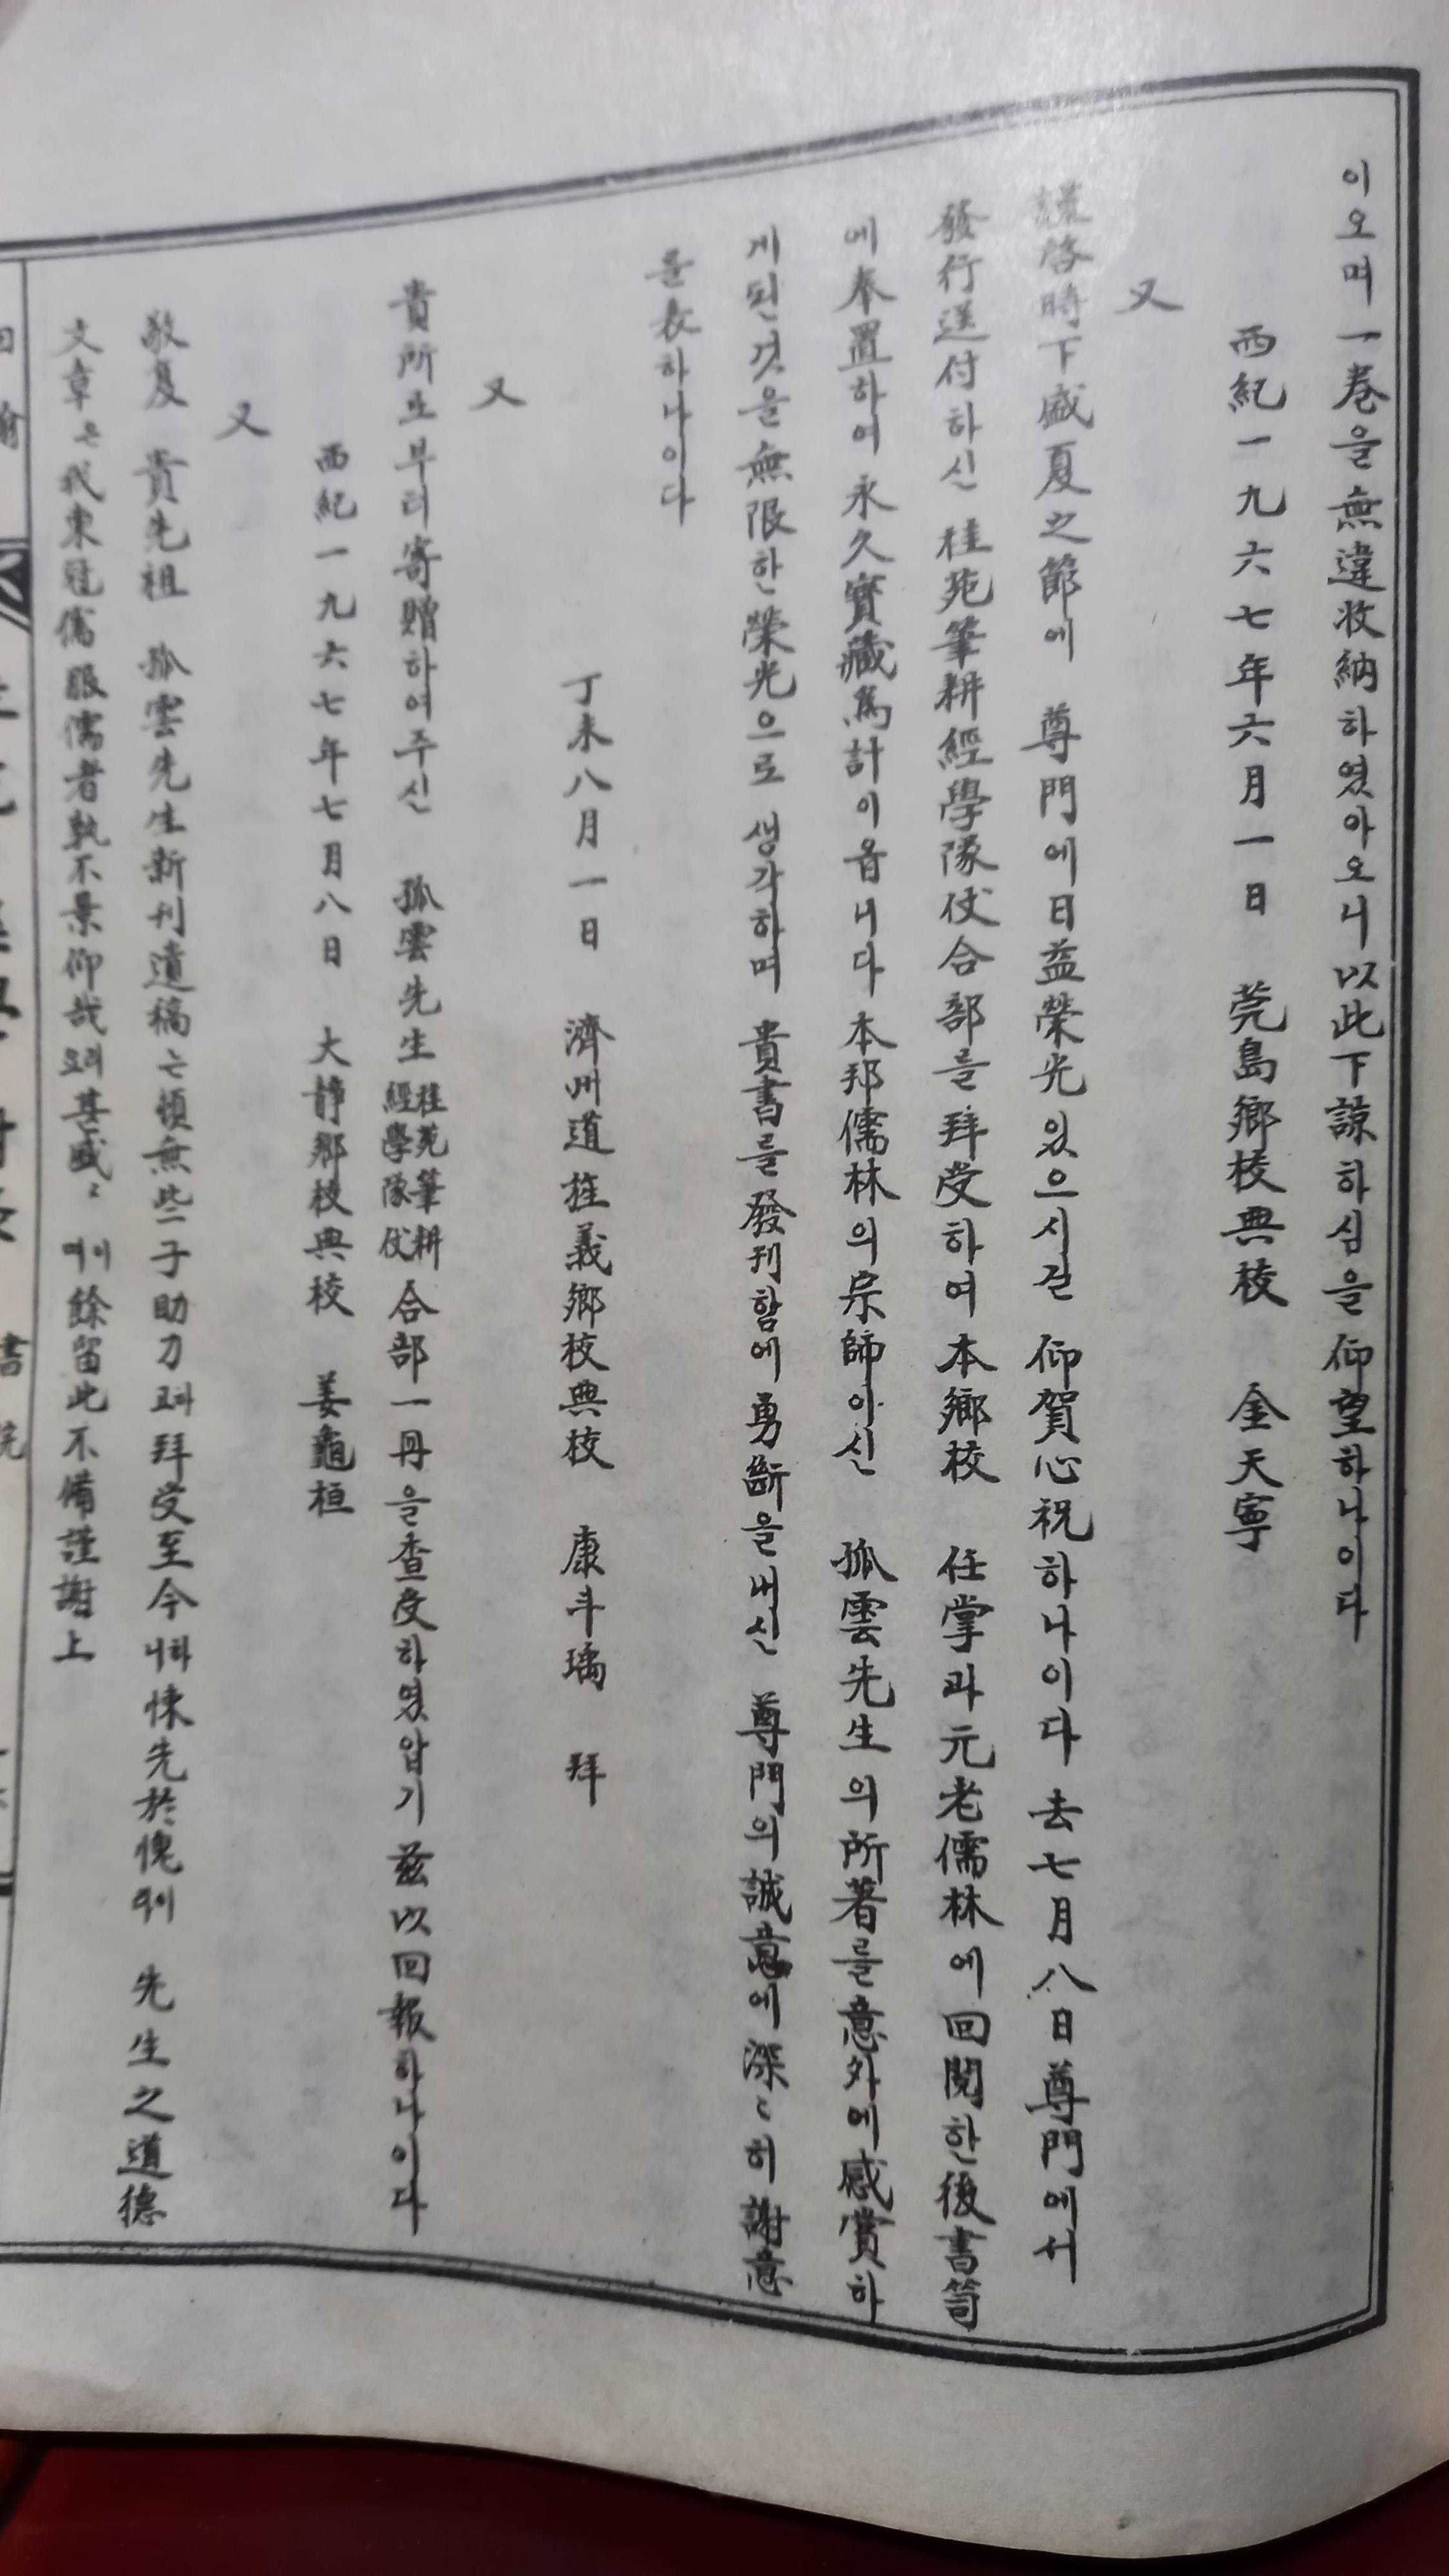 이오며 一卷을 無違收納하였아오니 以此下諒하심을 仰望하나이다
西紀一九六七年六月一日 莞島鄕校典校 金天寧
又
謹啓時下盛夏之節에 尊門에 日益榮光있으시길 仰賀心祝하나이다 去七月八日尊門에서
發行送付하신 桂苑筆耕經學隊仗合部를 拜受하여 本鄕校 任掌과 元老儒林에 回閱한後書笥
에 奉置하여 永久寶藏爲計이옵니다 本邦儒林의 宗師이신 孤雲先生의 所著를 意外에 感賞하
게된것을 無限한 榮光으로 생각하며 貴書를 發刊함에 勇斷을내신 尊門의 誠意에 深〻히 謝意
를 表하나이다
丁未八月一日 濟州道旌義鄕校典校 康斗璚 拜
又
貴所로부터 寄贈하여주신 孤雲先生 桂苑筆耕 經學隊仗 合部一冊을 查受하였압기 玆以回報하나이다
西紀一九六七年七月八日 大靜鄕校典校 姜龜桓
又
敬夏 貴先祖 孤雲先生新刊遺稿亡頓無些子助刀코 拜受至今하니 悚先於愧이며 先生之道德
文章은 我東冠儒服儒者孰不景仰哉 甚感〻 이며 餘留此不備謹謝上
書院